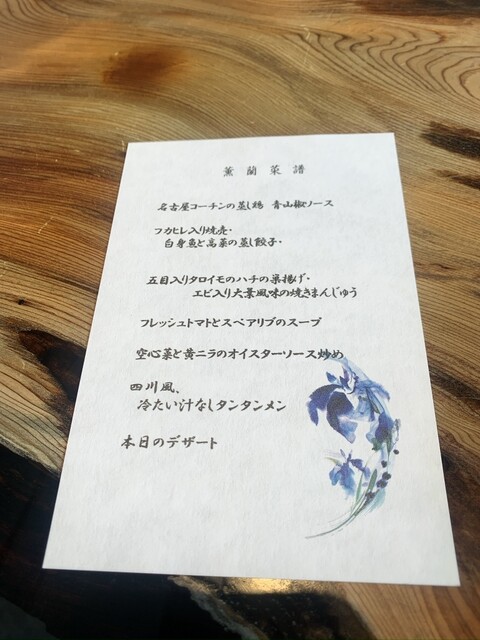 薫蘭菜譜
名古屋コーチンの蒸し鶏 青山椒ソース
フカヒレ入り焼売・
白身魚と高菜の蒸し餃子・
五目入りタロイモのハチの巣揚げ・
エビ入り大葉風味の焼きまんじゅう
フレッシュトマトとスペアリブのスープ
空心菜と黄ニラのオイスターソース炒め
四川風、
冷たい汁なしタンタンメン
本日のデザート